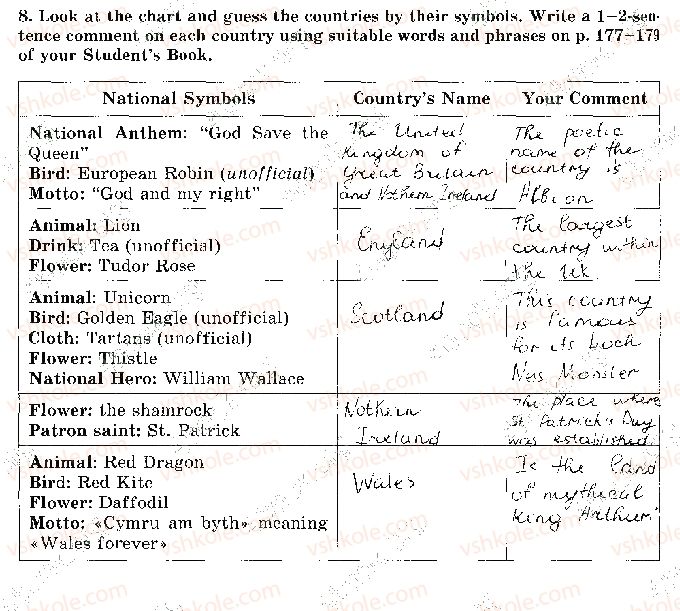 8. Look at the chart and guess the countries by their symbols. Write a 1–2-sen-
tence comment on each country using suitable words and phrases on p. 177–179
of your Student's Book.
National Symbols Country's Name Your Comment
National Anthem: "God Save the
Queen"
Bird: European Robin (unofficial)
Motto: "God and my right"
The United
Kingdom of
Great Britain
and Nothern Ireland
The poetic
name of the
country is
Albion
Animal: Lion
Drink: Tea (unofficial)
Flower: Tudor Rose
England
The largest
country within
the UK
Animal: Unicorn
Bird: Golden Eagle (unofficial)
Cloth: Tartans (unofficial)
Flower: Thistle
National Hero: William Wallace
Scotland
This country
is famous
for its Loch
Nes Monster
Flower: the shamrock
Patron saint: St. Patrick
Nothern
Ireland
The place where
St Patrick's Day
was established
Animal: Red Dragon
Bird: Red Kite
Flower: Daffodil
Motto: «Cymru am byth» meaning
«Wales forever»
Wales
Is the land
of mythical
King "Arthur"
vshkole.com